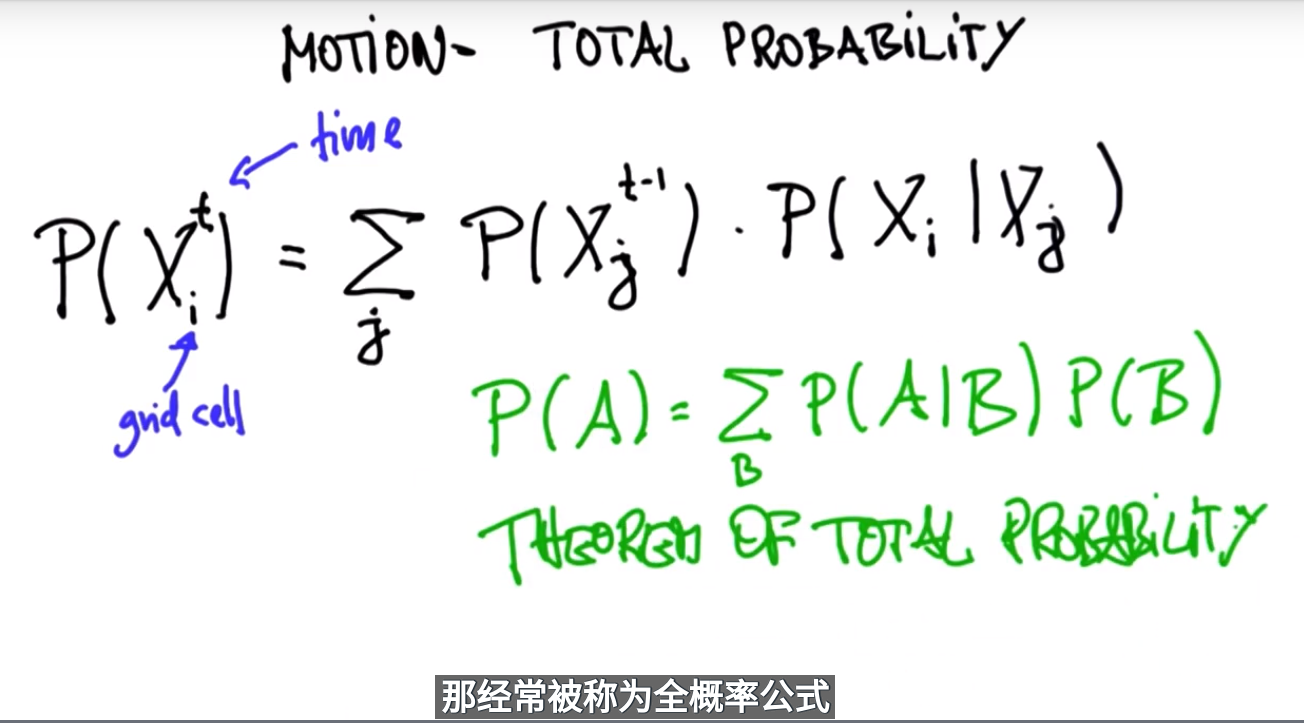 MOTION- TOTAL PROBABILITY
time
P(X_i^t) = ∑_j P(X_j^{t-1}) · P(X_i | X_j)
grid cell
P(A) = ∑_B P(A|B) P(B)
THEOREM OF TOTAL PROBABILITY
那经常被称为全概率公式